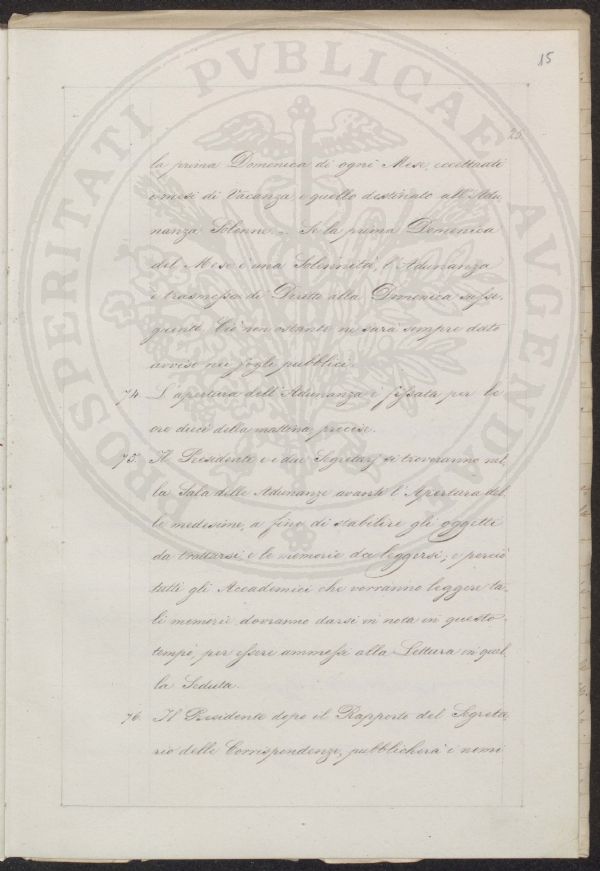 15
25.
la prima Domenica di ogni Mese, eccettuati
i mesi di Vacanza e quello destinato all'Adu,
nanza Solenne. Se la prima Domenica
del Mese è una Solennità, l'Adunanza
è trasmessa di Diritto alla Domenica susse,
guente. Ciò non ostante ne sarà sempre dato
avviso nei fogli pubblici.
74. L'apertura dell'Adunanza è fissata per le
ore dieci della mattina precise.
75. Il Presidente e i due Segretarj si troveranno nel,
la Sala delle Adunanze avanti l'Apertura del,
le medesime, a fine di stabilire gli oggetti
da trattarsi, e le memorie da leggersi; e perciò
tutti gli Accademici che vorranno leggere ta,
li memorie dovranno darsi in nota in questo
tempo, per essere ammessi alla Lettura in quel,
la Seduta.
76. Il Presidente dopo il Rapporto del Segreta,
rio delle Corrispondenze, pubblicherà i nomi
PROSPERITATI PVBLICAE AVGENDAE